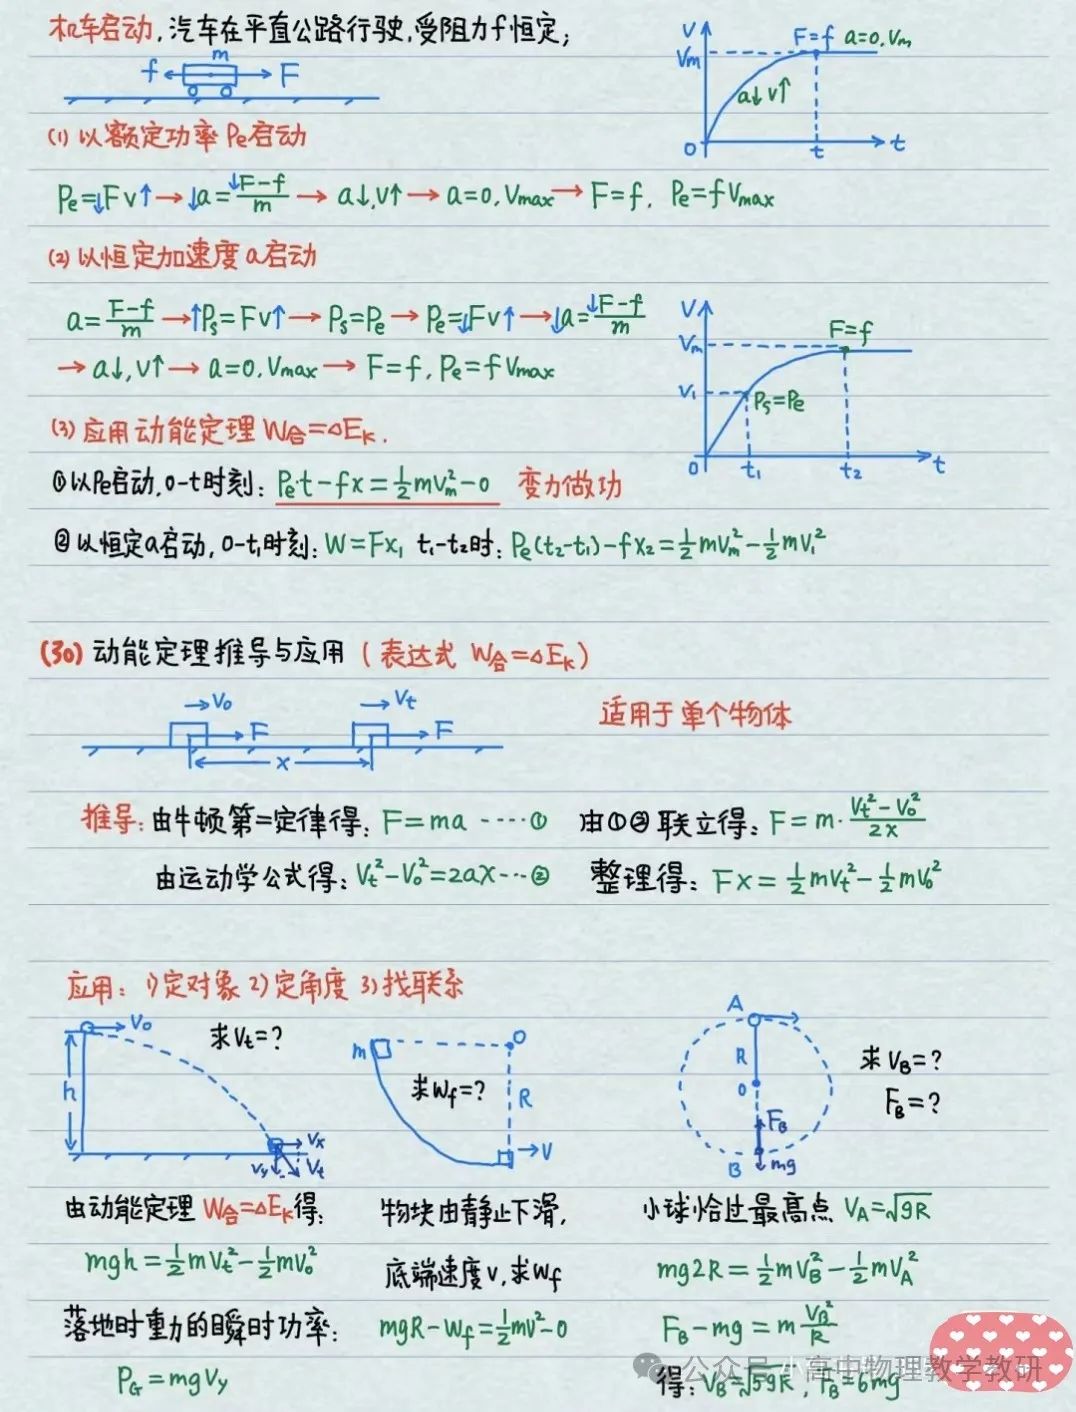 机车启动,汽车在平直公路行驶,受阻力f恒定;
m
f F
V
Vm
F=f a=0,Vm
a↓V↑
0 t t
(1) 以额定功率Pe启动
Pe=↓Fv↑→↓a=↓F-f/m→a↓,v↑→a=0,Vmax→F=f, Pe=fVmax
(2) 以恒定加速度a启动
a=F-f/m→↑Ps=Fv↑→Ps=Pe→Pe=↓Fv↑→↓a=↓F-f/m
→a↓,v↑→a=0,Vmax→F=f,Pe=fVmax
V
Vm
F=f
V₁
Ps=Pe
0 t₁ t₂ t
(3) 应用动能定理W合=ΔEk.
①以Pe启动,0-t时刻: Pe·t-fx=½mVm²-0 变力做功
②以恒定a启动, 0-t₁时刻: W=Fx₁ t₁-t₂时: Pe(t₂-t₁)-fx₂=½mVm²-½mV₁²
(30) 动能定理推导与应用 (表达式 W合=ΔEk)
→V₀ →Vt
F F
x
适用于单个物体
推导: 由牛顿第二定律得: F=ma ····① 由①②联立得: F=m·Vt²-V₀²/2x
由运动学公式得: Vt²-V₀²=2ax···② 整理得: Fx=½mVt²-½mV₀²
应用: 1)定对象 2)定角度 3)找联系
V₀
求Vt=?
h
Vx
Vy Vt
m O
求Wf=?
R
→V
A
R
0
FB
B mg
求VB=?
FB=?
由动能定理 W合=ΔEk得:
mgh=½mVt²-½mV₀²
落地时重力的瞬时功率:
PG=mgVy
物块由静止下滑,
底端速度v,求Wf
mgR-Wf=½mv²-0
小球恰过最高点 VA=√gR
mg2R=½mVB²-½mVA²
FB-mg=mVB²/R
得: VB=√5gR, FB=6mg
公众号 小高中物理教学教研